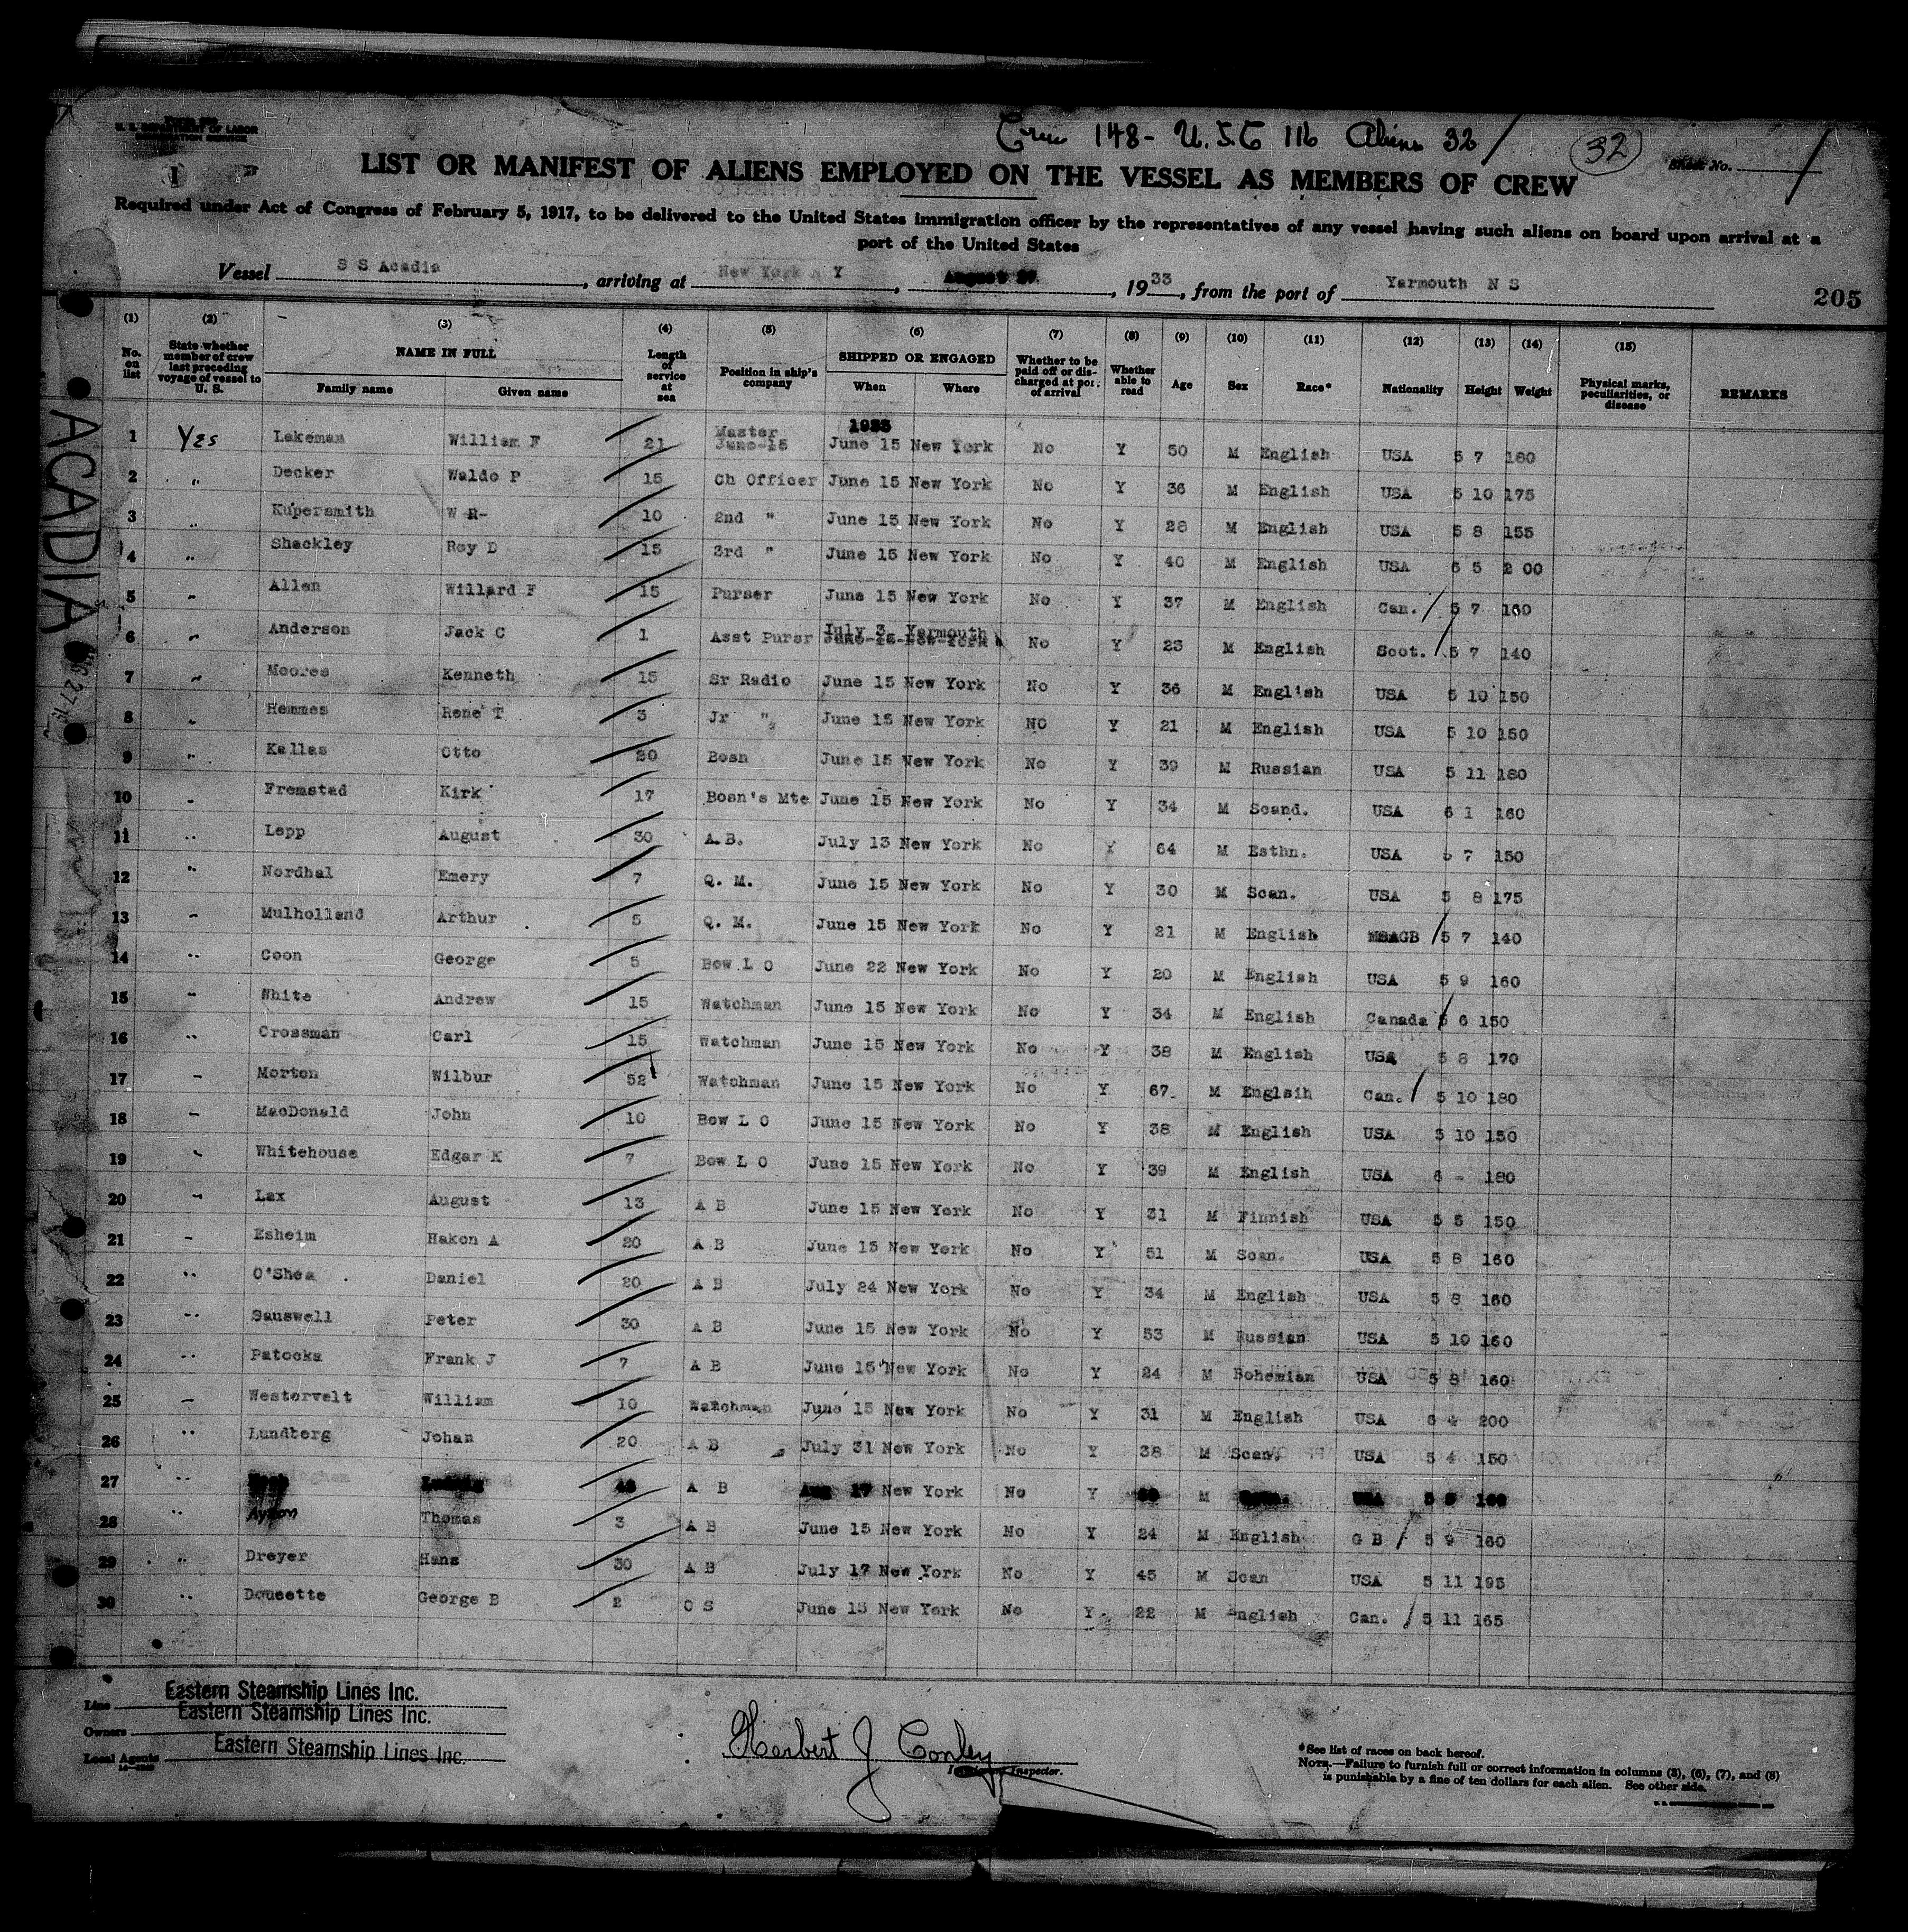 Crew 148- U.S.C 116 Aliens 32 /
32
Sheet No. /
U. S. DEPARTMENT OF LABOR
IMMIGRATION SERVICE
LIST OR MANIFEST OF ALIENS EMPLOYED ON THE VESSEL AS MEMBERS OF CREW
Required under Act of Congress of February 5, 1917, to be delivered to the United States immigration officer by the representatives of any vessel having such aliens on board upon arrival at a
port of the United States
Vessel S S Acadia, arriving at New York N Y, August, 1933, from the port of Yarmouth N S
205
ACADIA
(1) (2) (3) (4) (5) (6) (7) (8) (9) (10) (11) (12) (13) (14) (15)
No. on list State whether member of crew last preceding voyage of vessel to U. S. NAME IN FULL Family name Given name Length of service at sea Position in ship's company SHIPPED OR ENGAGED When Where Whether to be paid off or discharged at port of arrival Whether able to read Age Sex Race* Nationality Height Weight Physical marks, peculiarities, or disease REMARKS
1933
1 Yes Lakeman William F 21 Master June 15 New York No Y 50 M English USA 5 7 180
2 " Decker Waldo P 15 Ch Officer June 15 New York No Y 36 M English USA 5 10 175
3 " Kupersmith W R- 10 2nd " June 15 New York No Y 28 M English USA 5 8 155
4 " Shackley Roy D 15 3rd " June 15 New York No Y 40 M English USA 5 5 200
5 " Allen Willard F 15 Purser June 15 New York No Y 37 M English Can. / 5 7 160
6 " Anderson Jack C 1 Asst Pursr July 3 Yarmouth No Y 23 M English Scot. / 5 7 140
7 " Moores Kenneth 15 Sr Radio June 15 New York No Y 36 M English USA 5 10 150
8 " Hemmes Rene T 3 Jr " June 15 New York NO Y 21 M English USA 5 10 150
9 " Kallas Otto 20 Bosn June 15 New York No Y 39 M Russian USA 5 11 180
10 " Fremstad Kirk 17 Bosn's Mte June 15 New York No Y 34 M Scand. USA 6 1 160
11 " Lepp August 30 A.B. July 13 New York No Y 64 M Esthn. USA 5 7 150
12 " Nordhal Emery 7 Q. M. June 15 New York No Y 30 M Scan. USA 5 8 175
13 " Mulholland Arthur 5 Q. M. June 15 New York No Y 21 M English GB / 5 7 140
14 " Coon George 5 Bow L O June 22 New York No Y 20 M English USA 5 9 160
15 " White Andrew 15 Watchman June 15 New York No Y 34 M English Canada / 5 6 150
16 " Crossman Carl 15 Watchman June 15 New York No Y 38 M English USA 5 8 170
17 " Morton Wilbur 52 Watchman June 15 New York No Y 67 M Englsih Can. / 5 10 180
18 " MacDonald John 10 Bow L O June 15 New York No Y 38 M English USA 5 10 150
19 " Whitehouse Edgar K 7 Bow L O June 15 New York No Y 39 M English USA 6 - 180
20 " Lax August 13 A B June 15 New York No Y 31 M Finnish USA 5 5 150
21 " Esheim Hakon A 20 A B June 15 New York No Y 51 M Scan. USA 5 8 160
22 " O'Shea Daniel 20 A B July 24 New York No Y 34 M English USA 5 8 160
23 " Sanswell Peter 30 A B June 15 New York No Y 53 M Russian USA 5 10 160
24 " Patocka Frank J 7 A B June 15 New York No Y 24 M Bohemian USA 5 8 160
25 " Westervelt William 10 Watchman June 15 New York No Y 31 M English USA 6 4 200
26 " Lundberg Johan 20 A B July 31 New York No Y 38 M Scan. USA 5 4 150
27 " A B Aug 17 New York No Y M USA
28 " Thomas 3 A B June 15 New York No Y 24 M English G B / 5 9 160
29 " Dreyer Hans 30 A B July 17 New York No Y 45 M Scan USA 5 11 195
30 " Doucette George B 2 O S June 15 New York No Y 22 M English Can. / 5 11 165
Line Eastern Steamship Lines Inc.
Owners Eastern Steamship Lines Inc.
Local Agents Eastern Steamship Lines Inc.
Herbert J Conley
Immigrant Inspector.
*See list of races on back hereof.
NOTE.—Failure to furnish full or correct information in columns (3), (6), (7), and (8)
is punishable by a fine of ten dollars for each alien. See other side.